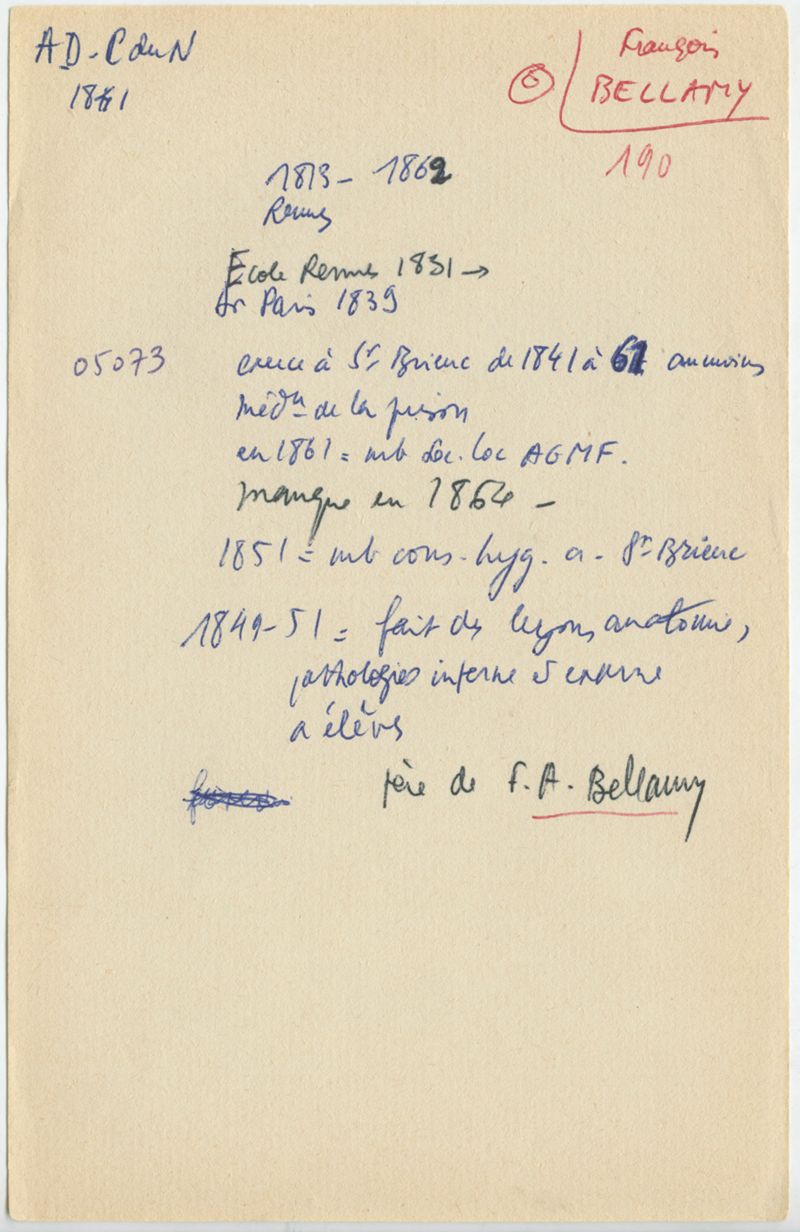 AD. C du N
1861
François
6
BELLAMY
190
1813 - 1862
Rennes
École Rennes 1831 →
Dr Paris 1839
05073 exerce à St Brieuc de 1841 à 61 au moins
médn de la prison
en 1861 = mb Soc. loc AGMF.
manque en 1864 -
1851 = mb cons. hyg. a. St Brieuc
1849-51 = fait des leçons anatomie,
pathologies interne et externe
a élèves
père de F. A. Bellamy